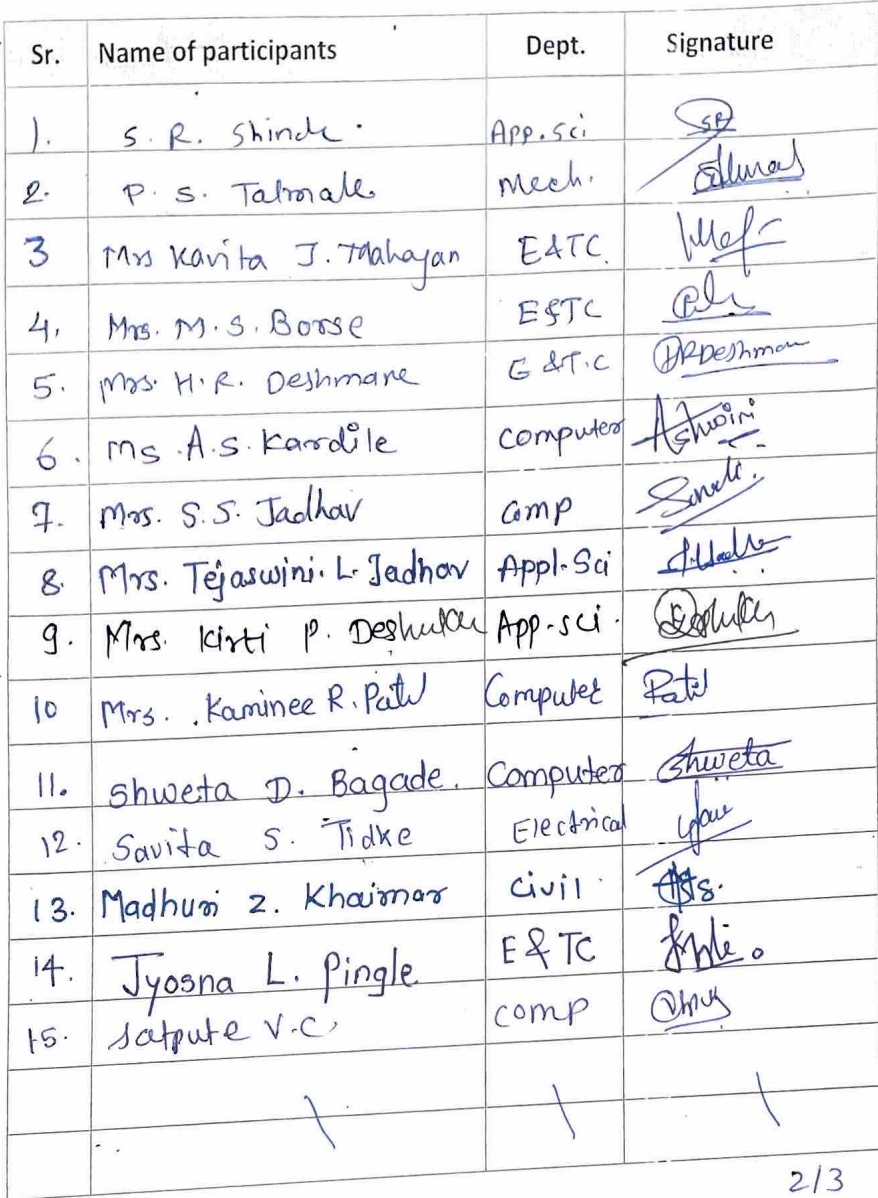 Sr. Name of participants Dept. Signature
1. S. R. Shinde. App.sci SR
2. P. S. Talmale Mech.
3 Mrs Kavita J. Mahajan E&TC.
4, Mrs. M.S. Borse E&TC
5. Mrs. H.R. Deshmane E&T.C HRDeshman
6. Ms. A.S. Kardile Computer Ashwini
7. Mrs. S.S. Jadhav Comp
8. Mrs. Tejaswini. L. Jadhav Appl-Sci
9. Mrs. Kirti P. App-sci.
10 Mrs. Kaminee R. Patil Computer Patil
11. Shweta D. Bagade. Computer Shweta
12. Savita S. Tidke Electrical
13. Madhuri Z. Khairnar Civil
14. Jyosna L. Pingle E&TC
15. Satpute V.C. comp
2/3